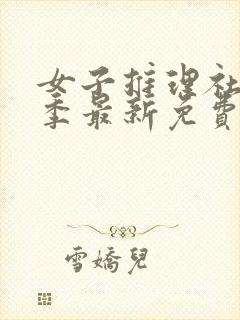 女子推理社
季最新免費
雪嬌兒